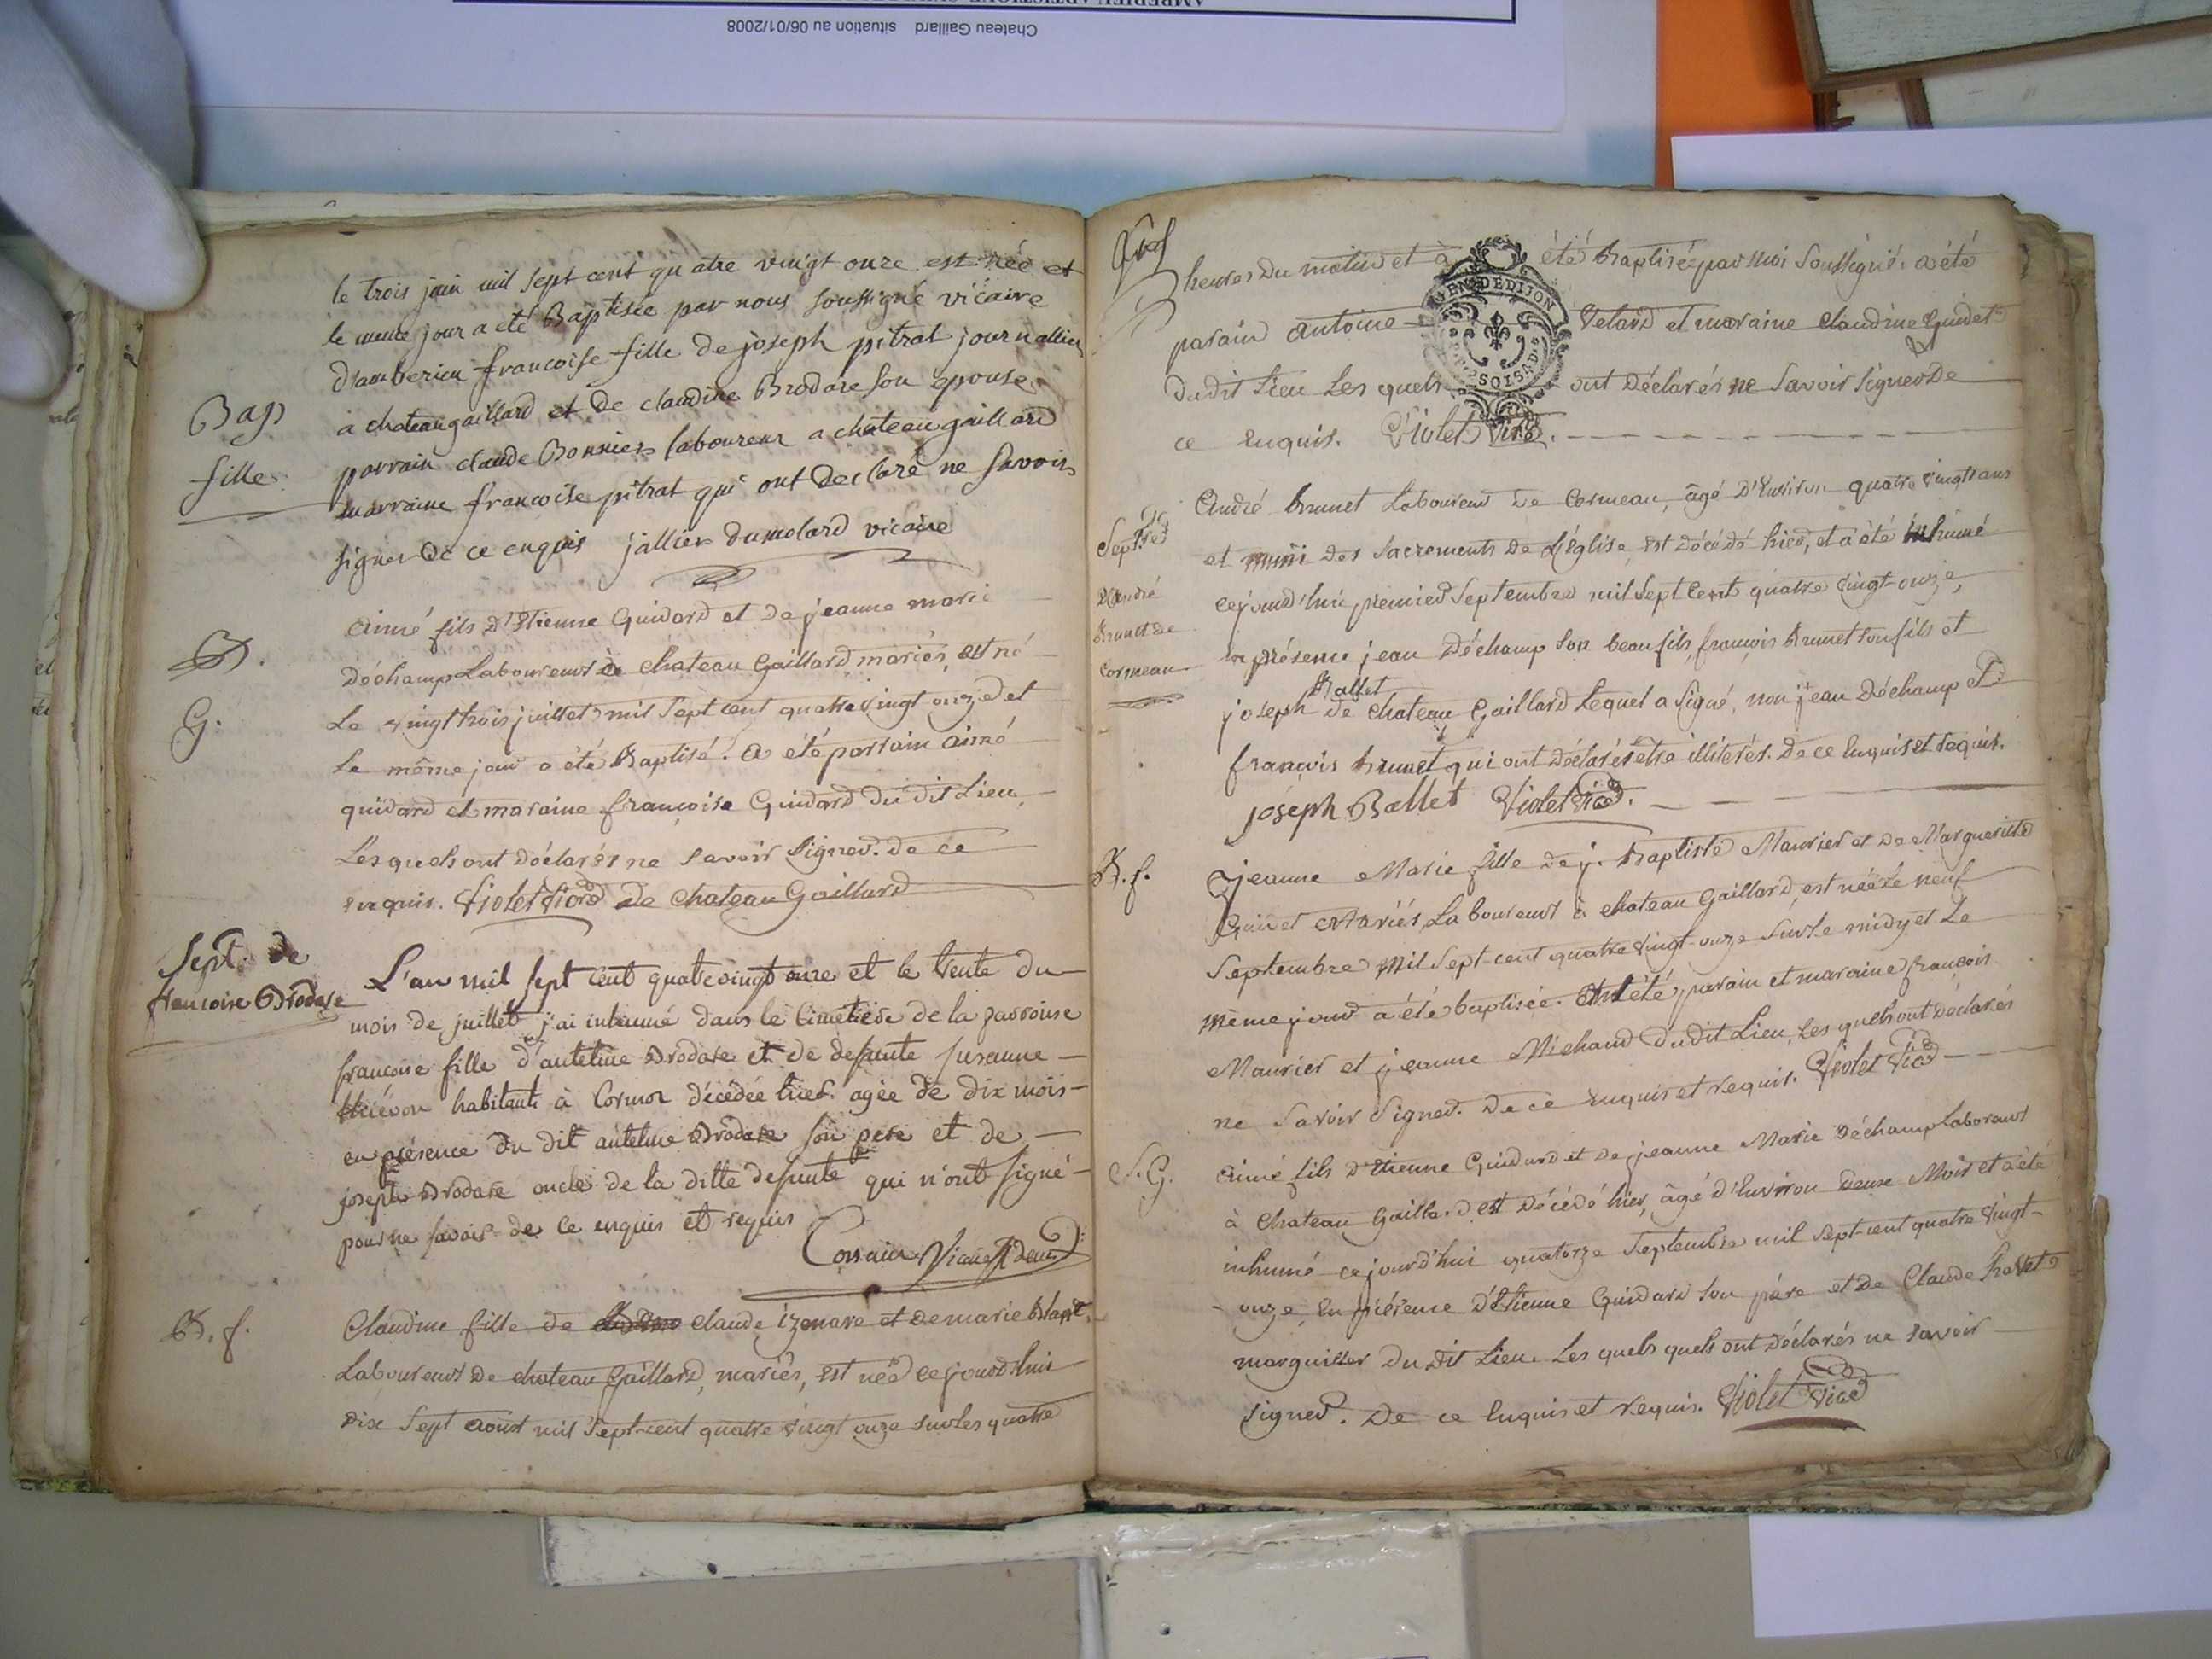 Chateau Gaillard situation au 06/01/2008
le trois juin mil sept cent quatre vingt onze est née et
le meme jour a eté Baptisée par nous soussigné vicaire
d'amberieu francoise fille de joseph pitrat journallier
à chateaugaillard et de claudine Brodare son epouse
Bap
fille
parrain claude Bonnier laboureur a chateaugaillard
marraine francoise pitrat qui ont declaré ne savoir
signer de ce enquis jallier dumolard vicaire
B.
G.
Aimé fils d'Etienne Guidard et de jeanne marie
Déchamp Laboureurs à Chateau Gaillard mariés, est né
Le vingt trois juillet mil Sept cent quatre vingt onze et
Le même jour a été Baptisé. A été parrain aimé
guidard et maraine françoise Guidard du dit Lieu,
Lesquels ont déclarés ne savoir Signer. de ce
enquis. Violet de Chateau Gaillard
Sept. de
francoise Brodare
L'an mil sept cent quatrevingt onze et le trente du
mois de juillet j'ai inhumé dans le Cimetiere de la parroisse
francoise fille d'antelme Brodare et de defunte susanne
habitants à Cormoz décédée hier. agée de dix mois
en présence du dit antelme Brodare son pere et de
joseph Brodare oncle de la ditte defunte qui n'ont signé
pour ne savoir de ce enquis et requis
B. f.
Claudine fille de claude izenare et de marie
Laboureurs de chateau Gaillard, mariés, est née cejourd'hui
dix Sept aout mil Sept-cent quatre vingt onze sur les quatre
heures du matin et à été Baptisé par moi Soussigné. a été
GEN. DE DIJON
parain Antoine Velard et maraine Claudine Guidet
dudit Lieu Les quels ont déclarés ne Savoir Signer De
ce Enquis. Violet
Sept.re
d'André
brunet de
Cormeau
André brunet Laboureur de Cormeau, âgé d'Environ quatre vingts ans
et muni des Sacrements de L'Eglise, est décédé hier, et a été inhumé
cejourd'hui premier Septembre mil Sept Cent quatre vingt-onze,
en présence jean Déchamp Son beaufils, françois brunet son fils et
Ballet
joseph de chateau Gaillard Lequel a signé, non jean Déchamp et
françois brunet qui ont déclarés etre illiterés. de ce Enquis et requis.
joseph Ballet Violet
B. f.
jeanne Marie fille de j. baptiste Maurier et de Marguerite
Guidet Mariés, Laboureurs à chateau Gaillard, est née Le neuf
Septembre Mil Sept-cent quatre vingt-onze Sur le midy et Le
même jour a été baptisée. Ont été parain et maraine françois
Maurier et jeanne Michaud dudit Lieu, Les quels ont déclarés
ne Savoir Signer. De ce enquis et requis. Violet
S. G.
Aimé fils d'Etienne Guidard et de jeanne Marie Déchamp Laboreurs
à Chateau Gaillard est décédé hier, âgé d'Environ deux Mois et a été
inhumé cejourd'hui quatorze Septembre mil Sept-cent quatre vingt-
onze, En présence d'Etienne Guidard Son père et de Claude
marguiller du dit Lieu. Les quels quels ont déclarés ne savoir
signer. De ce Enquis et requis. Violet